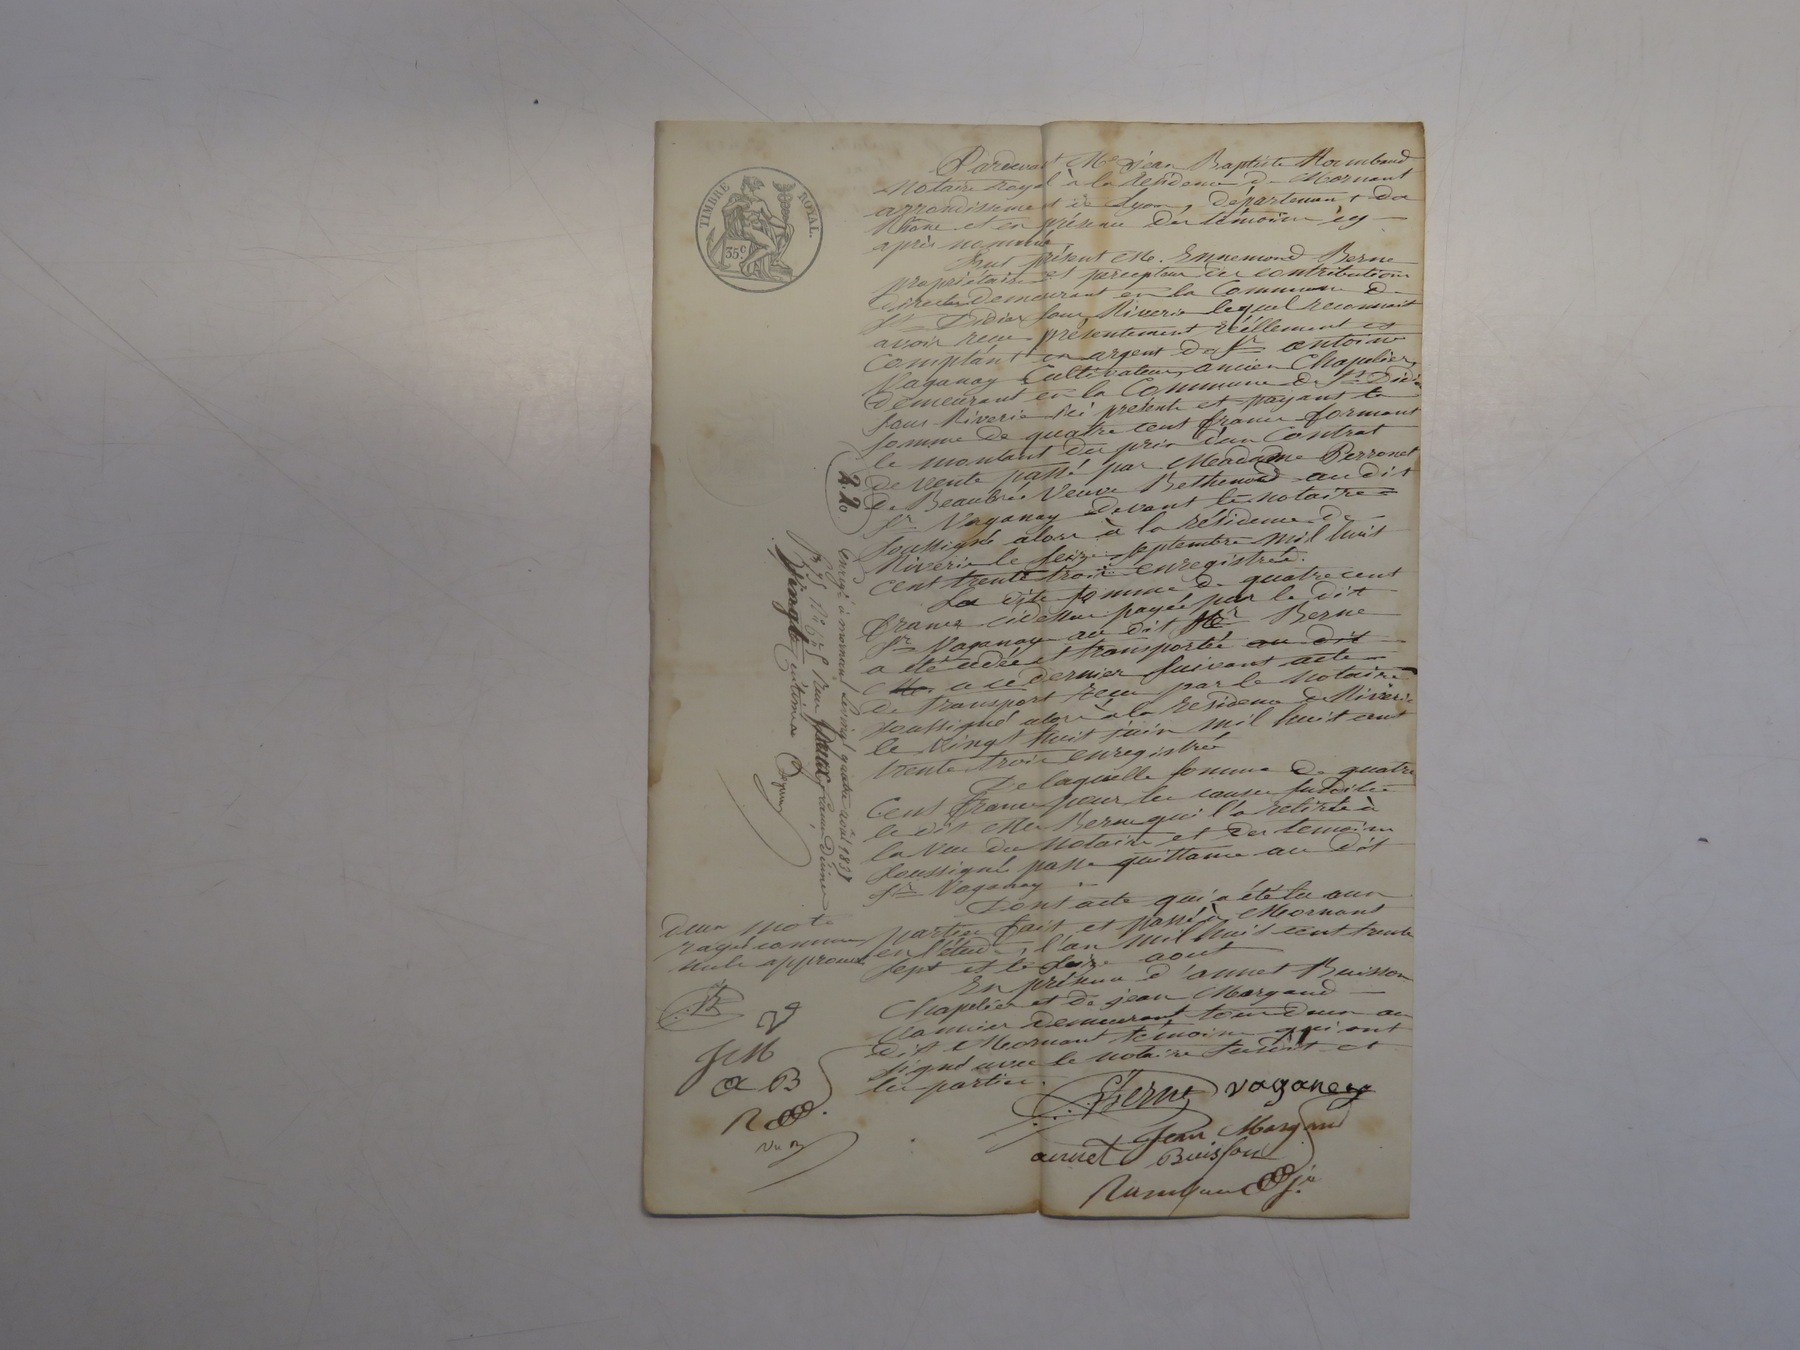 TIMBRE ROYAL.
35c
Pardevant Me Jean Baptiste
Notaire royal à la résidence de Mornant
arrondissement de Lyon, département du
Rhône et en présence des témoins cy
après nommés,
Fut présent M. Ennemond Berne
propriétaire et percepteur des contributions
directes demeurant en la Commune de
St Didier sous Riverie lequel reconnait
avoir reçu présentement réellement et
comptant en argent du Sr antoine
Vaganay Cultivateur, ancien Chapelier,
demeurant en la Commune de St Didier
sous Riverie ici présent et payant la
somme de quatre cent francs formant
le montant du prix d'un Contrat
de vente passé par Madame Perronet
de Beaubrée veuve Bethenod au dit
Sr Vaganay devant le notaire
soussigné alors à la résidence de
Riverie le seize septembre mil huit
cent trente trois enregistrée.
La dite somme de quatre cent
francs cidessus payée par le dit
Sr Vaganay au dit Sr Berne
a été cédée et transportée au dit
M. a ce dernier suivant acte
de transport reçu par le notaire
soussigné alors à la résidence de Riverie
le vingt huit juin mil huit cent
trente trois enregistré
De laquelle somme de quatre
Cent francs pour les causes susdites
le dit Me Berne qui l'a retirée à
la vue du notaire et des temoins
soussignés passe quittance au dit
Sr Vaganay.
Dont acte qui a été lu aux
parties fait et passé à Mornant
en l'étude, l'an mil huit cent trente
sept et le seize aout
En présence d'annet Buisson
Chapelier et de jean Margand
demeurant tous deux au
dit Mornant temoins qui ont
signé avec le notaire susdit et
les parties.
Berne Vaganay
Jean Margand
annet Buisson
enregé à mornant le vingt quatre août 1837
Reçu deux francs
Vingt centimes
deux mots
rayés comme
nuls approuvés
B
V
J M
a B
R